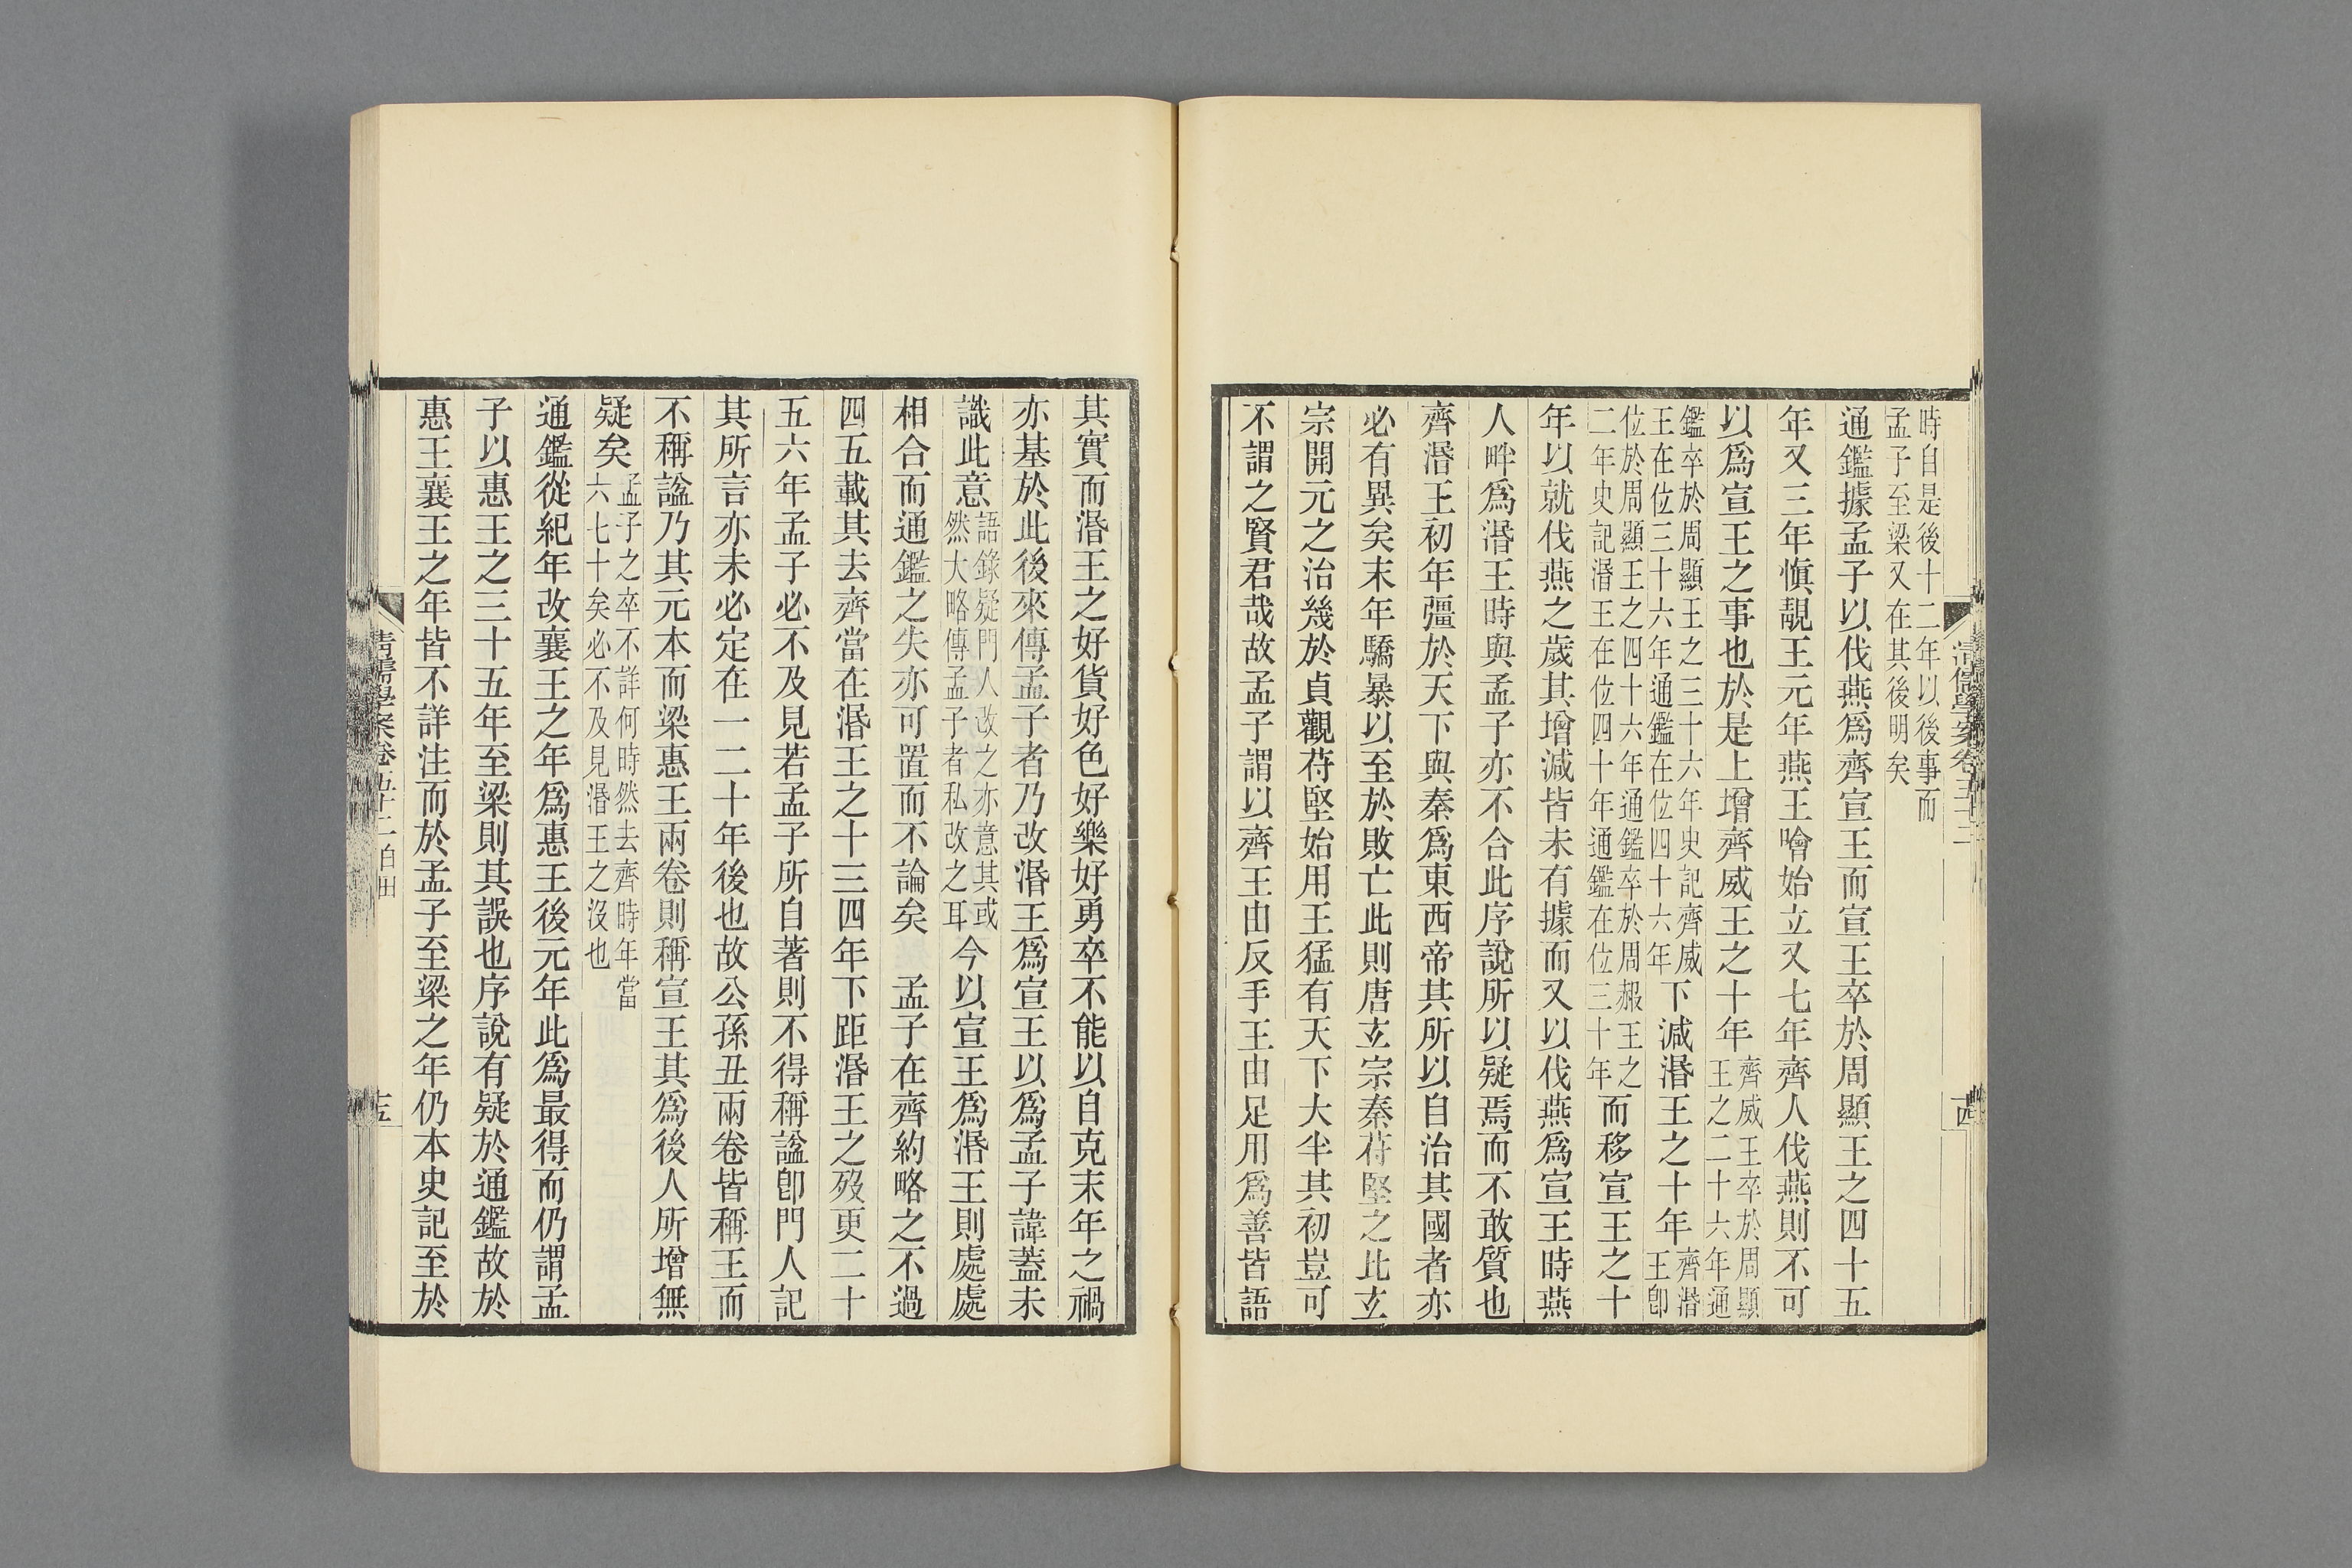 時自是後十二年以後事而
孟子至梁又在其後明矣
通鑑據孟子以伐燕爲齊宣王而宣王卒於周顯王之四十五
年又三年愼靚王元年燕王噲始立又七年齊人伐燕則不可
以爲宣王之事也於是上增齊威王之十年齊威王卒於周顯王之二十六年通
鑑卒於周顯王之三十六年史記齊威王在位三十六年通鑑在位四十六年下減湣王之十年齊湣王卽
位於周顯王之四十六年通鑑卒於周赧王之二年史記湣王在位四十年通鑑在位三十年而移宣王之十
年以就伐燕之歲其增減皆未有據而又以伐燕爲宣王時燕
人畔爲湣王時與孟子亦不合此序說所以疑焉而不敢質也
齊湣王初年彊於天下與秦爲東西帝其所以自治其國者亦
必有異矣末年驕暴以至於敗亡此則唐玄宗秦苻堅之比玄
宗開元之治幾於貞觀苻堅始用王猛有天下大半其初豈可
不謂之賢君哉故孟子謂以齊王由反手王由足用爲善皆語
其實而湣王之好貨好色好樂好勇卒不能以自克末年之禍
亦基於此後來傳孟子者乃改湣王爲宣王以爲孟子諱蓋未
識此意語錄疑門人改之亦意其或然大略傳孟子者私改之耳今以宣王爲湣王則處處
相合而通鑑之失亦可置而不論矣　孟子在齊約略之不過
四五載其去齊當在湣王之十三四年下距湣王之歿更二十
五六年孟子必不及見若孟子所自著則不得稱諡卽門人記
其所言亦未必定在一二十年後也故公孫丑兩卷皆稱王而
不稱諡乃其元本而梁惠王兩卷則稱宣王其爲後人所增無
疑矣孟子之卒不詳何時然去齊時年當六七十矣必不及見湣王之沒也
通鑑從紀年改襄王之年爲惠王後元年此爲最得而仍謂孟
子以惠王之三十五年至梁則其誤也序說有疑於通鑑故於
惠王襄王之年皆不詳注而於孟子至梁之年仍本史記至於
清儒學案卷五十二 白田